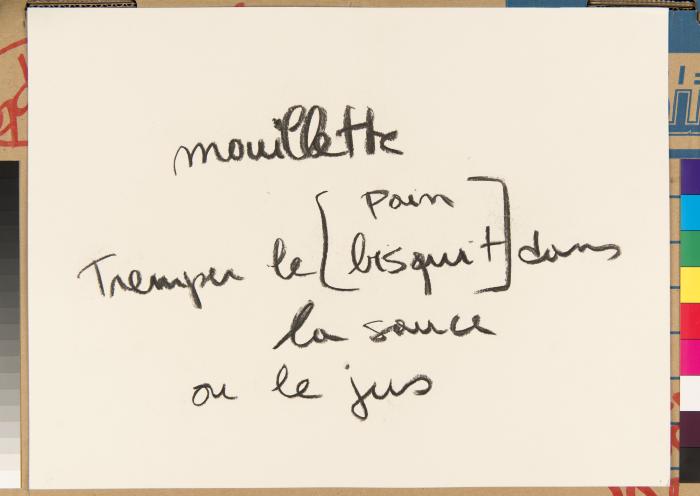 mouillette
pain
Tremper le [ bisquit ] dans
la sauce
ou le jus